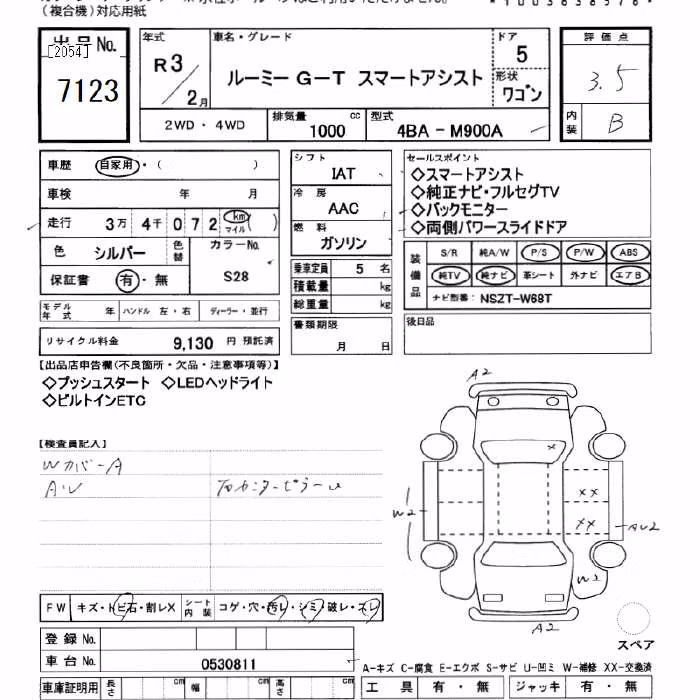 (複合機)対応用紙
出品No.
[2054]
7123
年式
R3/2月
車名・グレード
ルーミー G-T スマートアシスト
ドア
5
形状
ワゴン
評価点
3.5
内装
B
2WD・4WD
排気量
1000 cc
型式
4BA-M900A
車歴 自家用・( )
車検 年 月
走行 3万 4千 0 7 2 km マイル ( )
色 シルバー 色替
カラーNo.
S28
保証書 有・無
シフト
IAT
冷房
AAC
燃料
ガソリン
乗車定員 5 名
積載量 kg
総重量 kg
セールスポイント
◇スマートアシスト
◇純正ナビ・フルセグTV
◇バックモニター
◇両側パワースライドドア
装備品
S/R 純A/W P/S P/W ABS
純TV 純ナビ 革シート 外ナビ エアB
ナビ型番: NSZT-W68T
モデル年式 年 ハンドル 左・右 ディーラー・並行
リサイクル料金 9,130 円 預託済
書類期限
月 日
後日品
【出品店申告欄(不良箇所・欠品・注意事項等)】
◇プッシュスタート ◇LEDヘッドライト
◇ビルトインETC
【検査員記入】
Wカバ-A
A・U
A2
W2
XX
XX
AU2
W2
A2
FW キズ・トビ石・割レX シート内装 コゲ・穴・汚レ・シミ・破レ・スレ
登録No.
車台No. 0530811
スペア
A-キズ C-腐食 E-エクボ S-サビ U-凹ミ W-補修 XX-交換済
車庫証明用 長さ cm 幅 cm 高さ cm
工具 有・無 ジャッキ 有・無